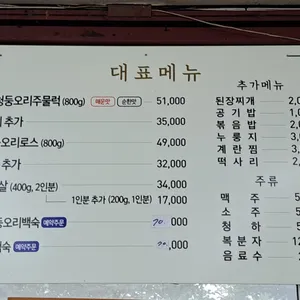 대표메뉴
청둥오리주물럭 (800g) 매운맛 순한맛 51,000
추가 35,000
오리로스 (800g) 49,000
추가 32,000
살 (400g, 2인분) 34,000
1인분 추가 (200g, 1인분) 17,000
둥오리백숙 예약주문 70,000
백숙 예약주문 ,000
추가메뉴
된장찌개 2,0
공기밥 1,0
볶음밥 2,0
누룽지 3,0
계란찜 3,0
떡사리 2,
주류
맥주 5
소주 5
청하 5
복분자 12
음료수 2